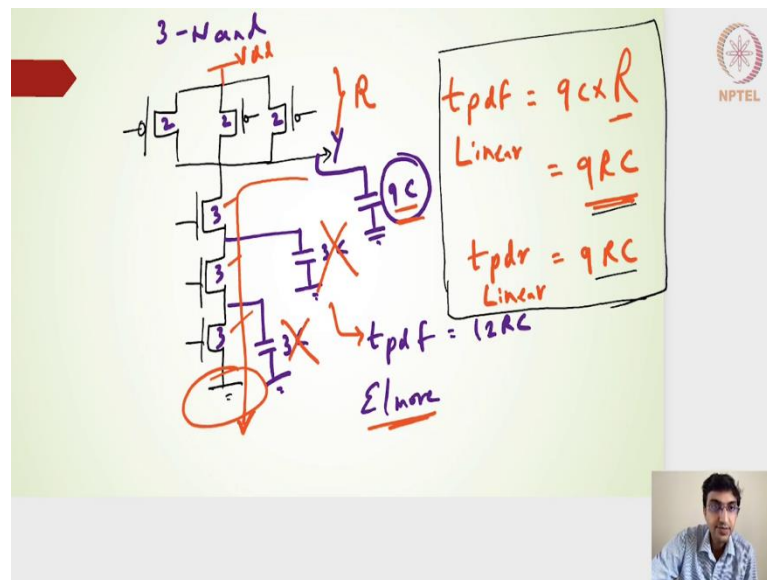 3-Nand
Vdd
2 2 2
R
Y
9C
3
3C
3
3
3C
tpdf = 12RC
Elmore
tpdf = 9C x R
Linear
= 9RC
tpdr = 9RC
Linear
NPTEL